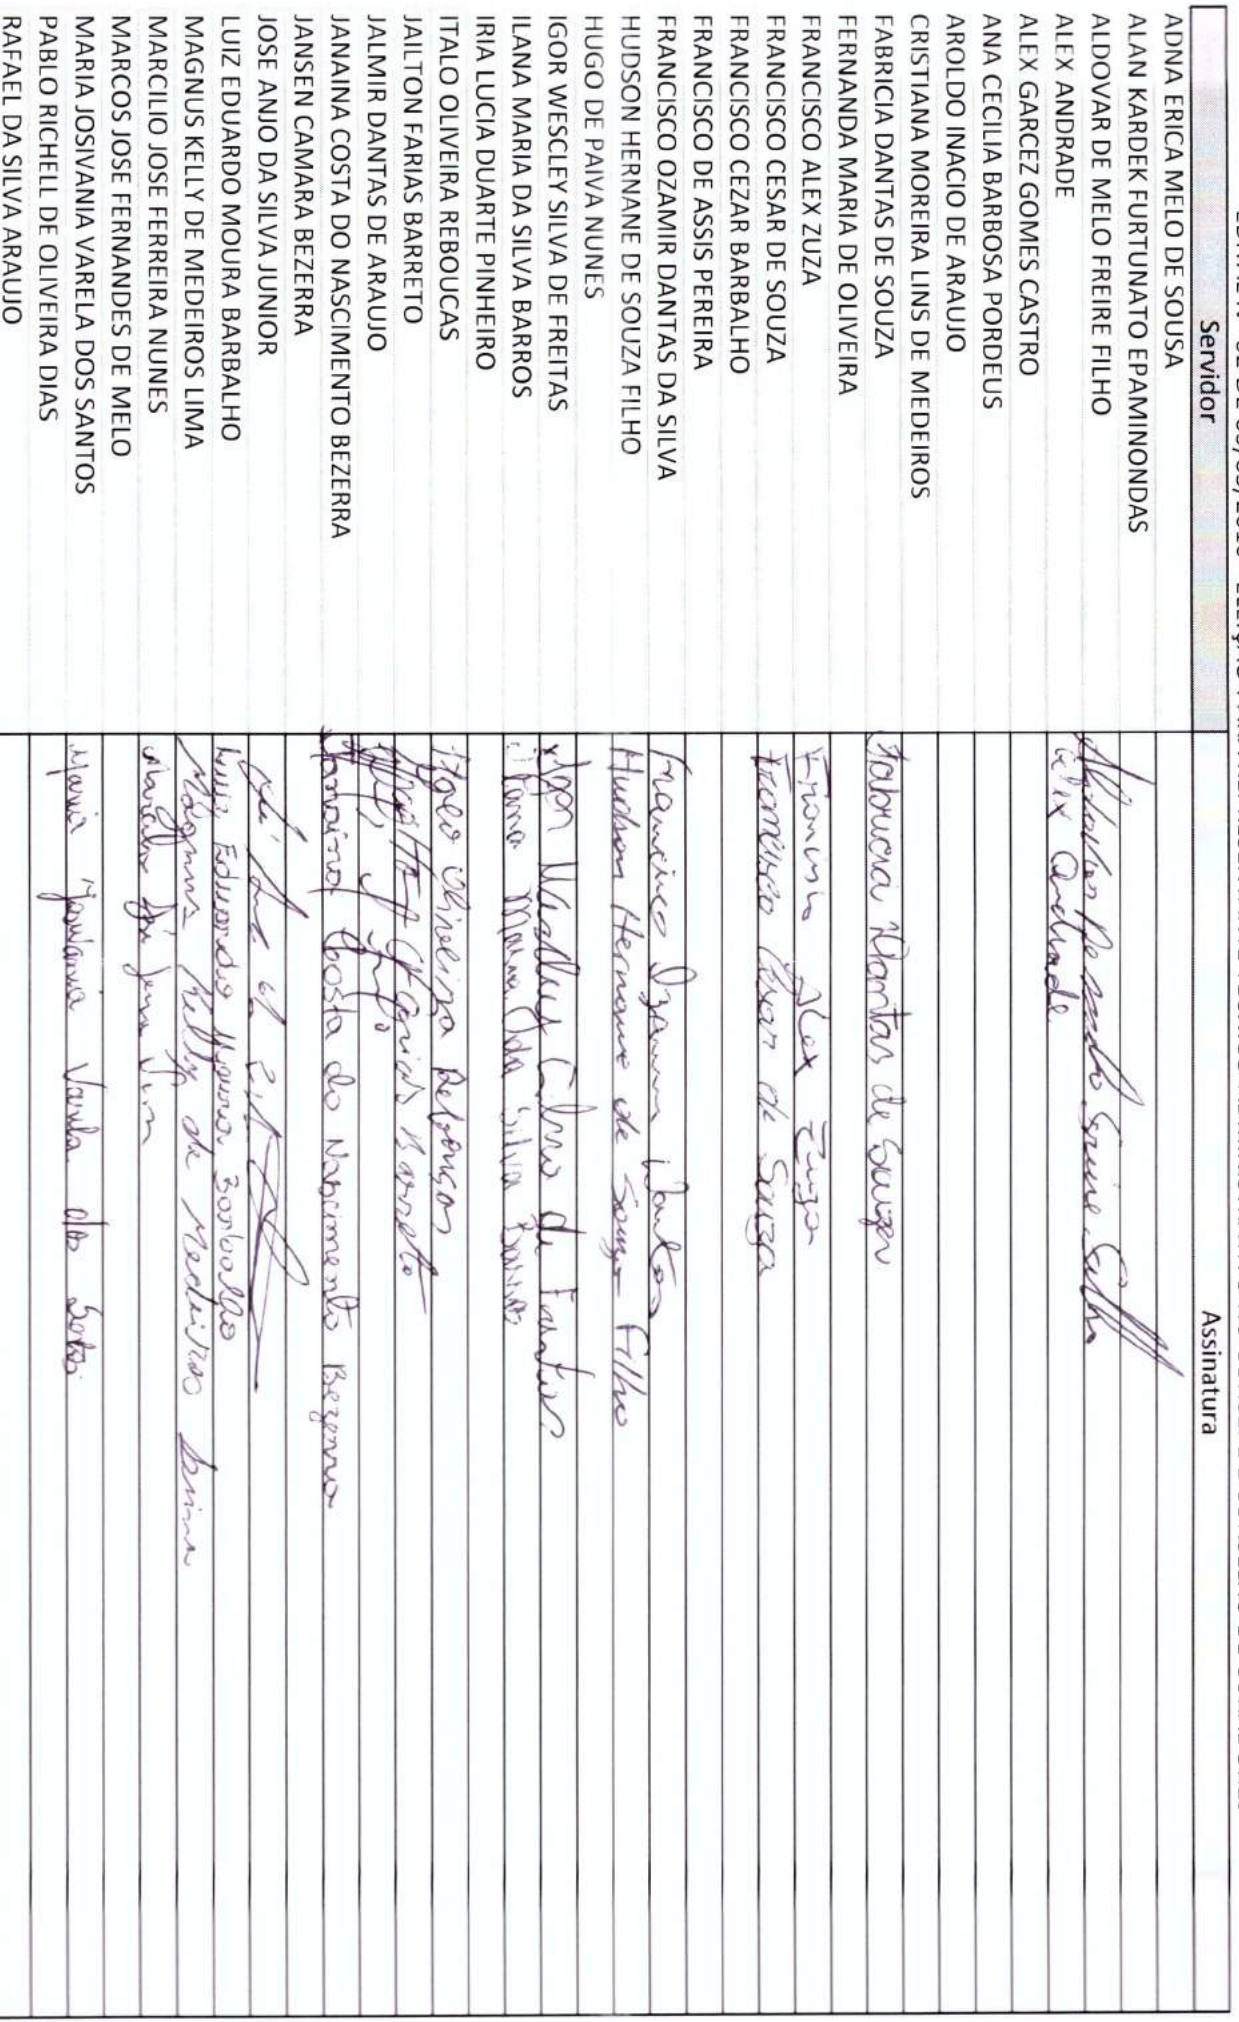 Servidor Assinatura
ADNA ERICA MELO DE SOUSA
ALAN KARDEK FURTUNATO EPAMINONDAS
ALDOVAR DE MELO FREIRE FILHO
ALEX ANDRADE Alex Andrade
ALEX GARCEZ GOMES CASTRO
ANA CECILIA BARBOSA PORDEUS
AROLDO INACIO DE ARAUJO
CRISTIANA MOREIRA LINS DE MEDEIROS
FABRICIA DANTAS DE SOUZA Fabricia Dantas de Souza
FERNANDA MARIA DE OLIVEIRA
FRANCISCO ALEX ZUZA Francisco Alex Zuza
FRANCISCO CESAR DE SOUZA Francisco Cesar de Souza
FRANCISCO CEZAR BARBALHO
FRANCISCO DE ASSIS PEREIRA
FRANCISCO OZAMIR DANTAS DA SILVA Francisco Ozamir Dantas
HUDSON HERNANE DE SOUZA FILHO Hudson Hernane de Souza Filho
HUGO DE PAIVA NUNES
IGOR WESCLEY SILVA DE FREITAS Igor Weslley Silva de Freitas
ILANA MARIA DA SILVA BARROS Ilana Maria da Silva Barros
IRIA LUCIA DUARTE PINHEIRO
ITALO OLIVEIRA REBOUCAS Italo Oliveira Rebouças
JAILTON FARIAS BARRETO Farias Barreto
JALMIR DANTAS DE ARAUJO
JANAINA COSTA DO NASCIMENTO BEZERRA Janaina Costa do Nascimento Bezerra
JANSEN CAMARA BEZERRA
JOSE ANJO DA SILVA JUNIOR
LUIZ EDUARDO MOURA BARBALHO Luiz Eduardo Moura Barbalho
MAGNUS KELLY DE MEDEIROS LIMA Magnus Kelly de Medeiros Lima
MARCILIO JOSE FERREIRA NUNES
MARCOS JOSE FERNANDES DE MELO
MARIA JOSIVANIA VARELA DOS SANTOS Maria Josivania Varela dos Santos
PABLO RICHELL DE OLIVEIRA DIAS
RAFAEL DA SILVA ARAUJO